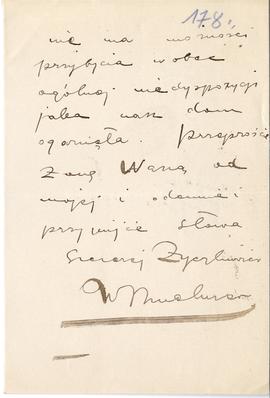 178.
nie ma możności
przybycia wobec
ogólnej niedyspozycji
jaka nasz dom
ogarnęła. Przeproście
Żonę Waszą od
mojej i odemnie i
przyjmijcie słowa
szczerej Życzliwości